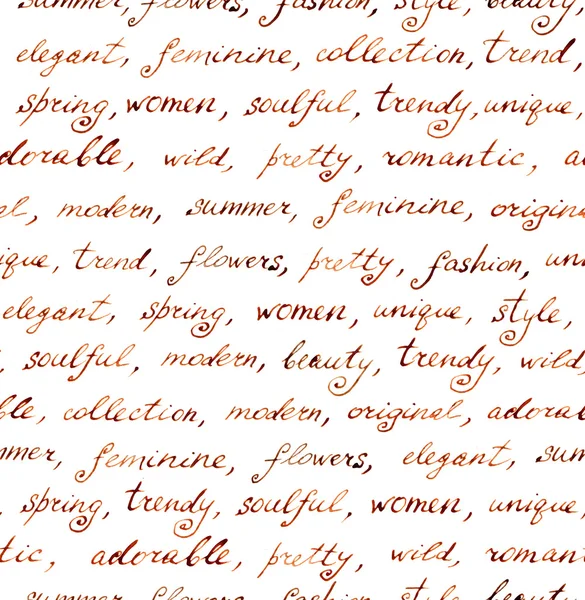 summer, flowers, fashion, style, beauty,
elegant, feminine, collection, trend,
spring, women, soulful, trendy, unique,
dorable, wild, pretty, romantic, a
el, modern, summer, feminine, origina
ique, trend, flowers, pretty, fashion, uni
elegant, spring, women, unique, style,
, soulful, modern, beauty, trendy, wild,
ble, collection, modern, original, adorab
mmer, feminine, flowers, elegant, sum
, spring, trendy, soulful, women, unique,
tic, adorable, pretty, wild, romant
summer, flowers, fashion, style, beauty